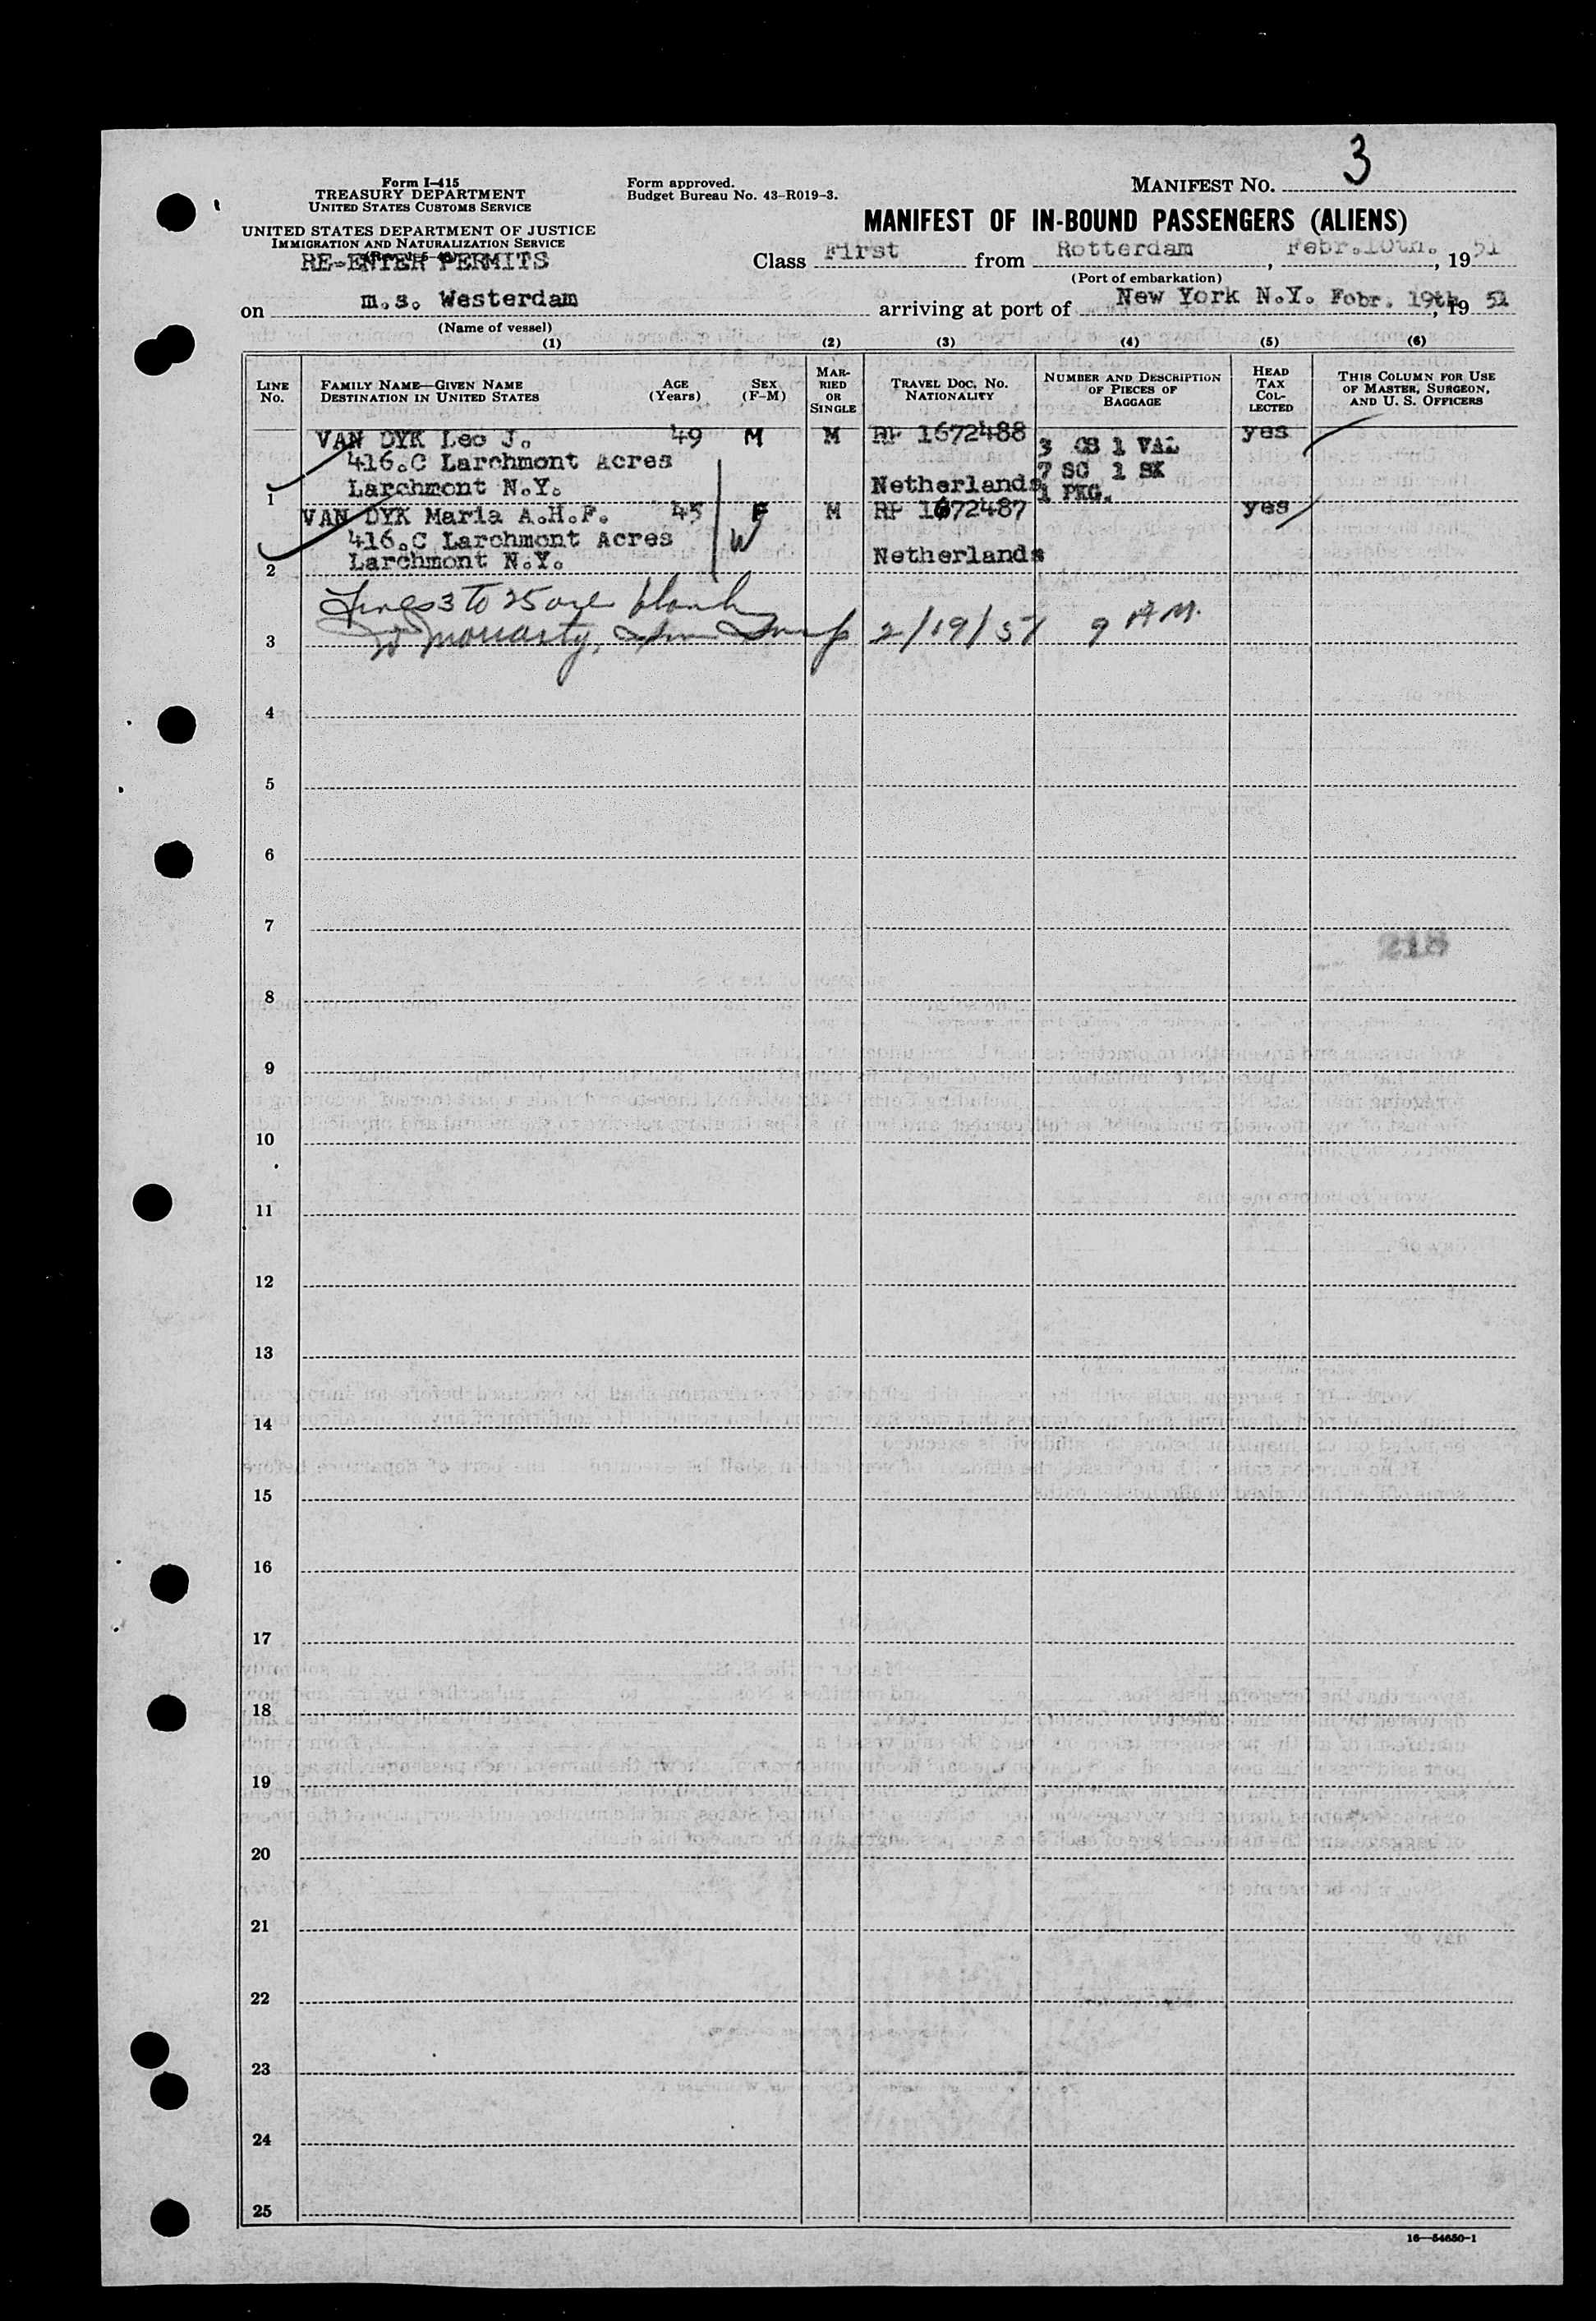 3
Form I-415
TREASURY DEPARTMENT
UNITED STATES CUSTOMS SERVICE
UNITED STATES DEPARTMENT OF JUSTICE
IMMIGRATION AND NATURALIZATION SERVICE
RE-ENTER PERMITS
Form approved.
Budget Bureau No. 43-R019-3.
MANIFEST NO.
MANIFEST OF IN-BOUND PASSENGERS (ALIENS)
Class First from Rotterdam, Febr.10th., 1951
(Port of embarkation)
on m.s. Westerdam arriving at port of New York N.Y. Febr. 19th, 1951
(Name of vessel)
(1) (2) (3) (4) (5) (6)
LINE No. FAMILY NAME—GIVEN NAME DESTINATION IN UNITED STATES AGE (Years) SEX (F-M) MARRIED OR SINGLE TRAVEL DOC. NO. NATIONALITY NUMBER AND DESCRIPTION OF PIECES OF BAGGAGE HEAD TAX COLLECTED THIS COLUMN FOR USE OF MASTER, SURGEON, AND U. S. OFFICERS
VAN DYK Leo J. 49 M M RP 1672488 3 CS 1 VAL yes
416.C Larchmont Acres 7 SC 1 SK
1 Larchmont N.Y. Netherlands 1 PKG.
VAN DYK Maria A.H.F. 45 F M RP 1672487 yes
416.C Larchmont Acres W
2 Larchmont N.Y. Netherlands
Lines 3 to 25 are blank
3 Moriarty, 2/19/51 9 AM.
4
5
6
7
218
8
9
10
11
12
13
14
15
16
17
18
19
20
21
22
23
24
25
16—54650-1